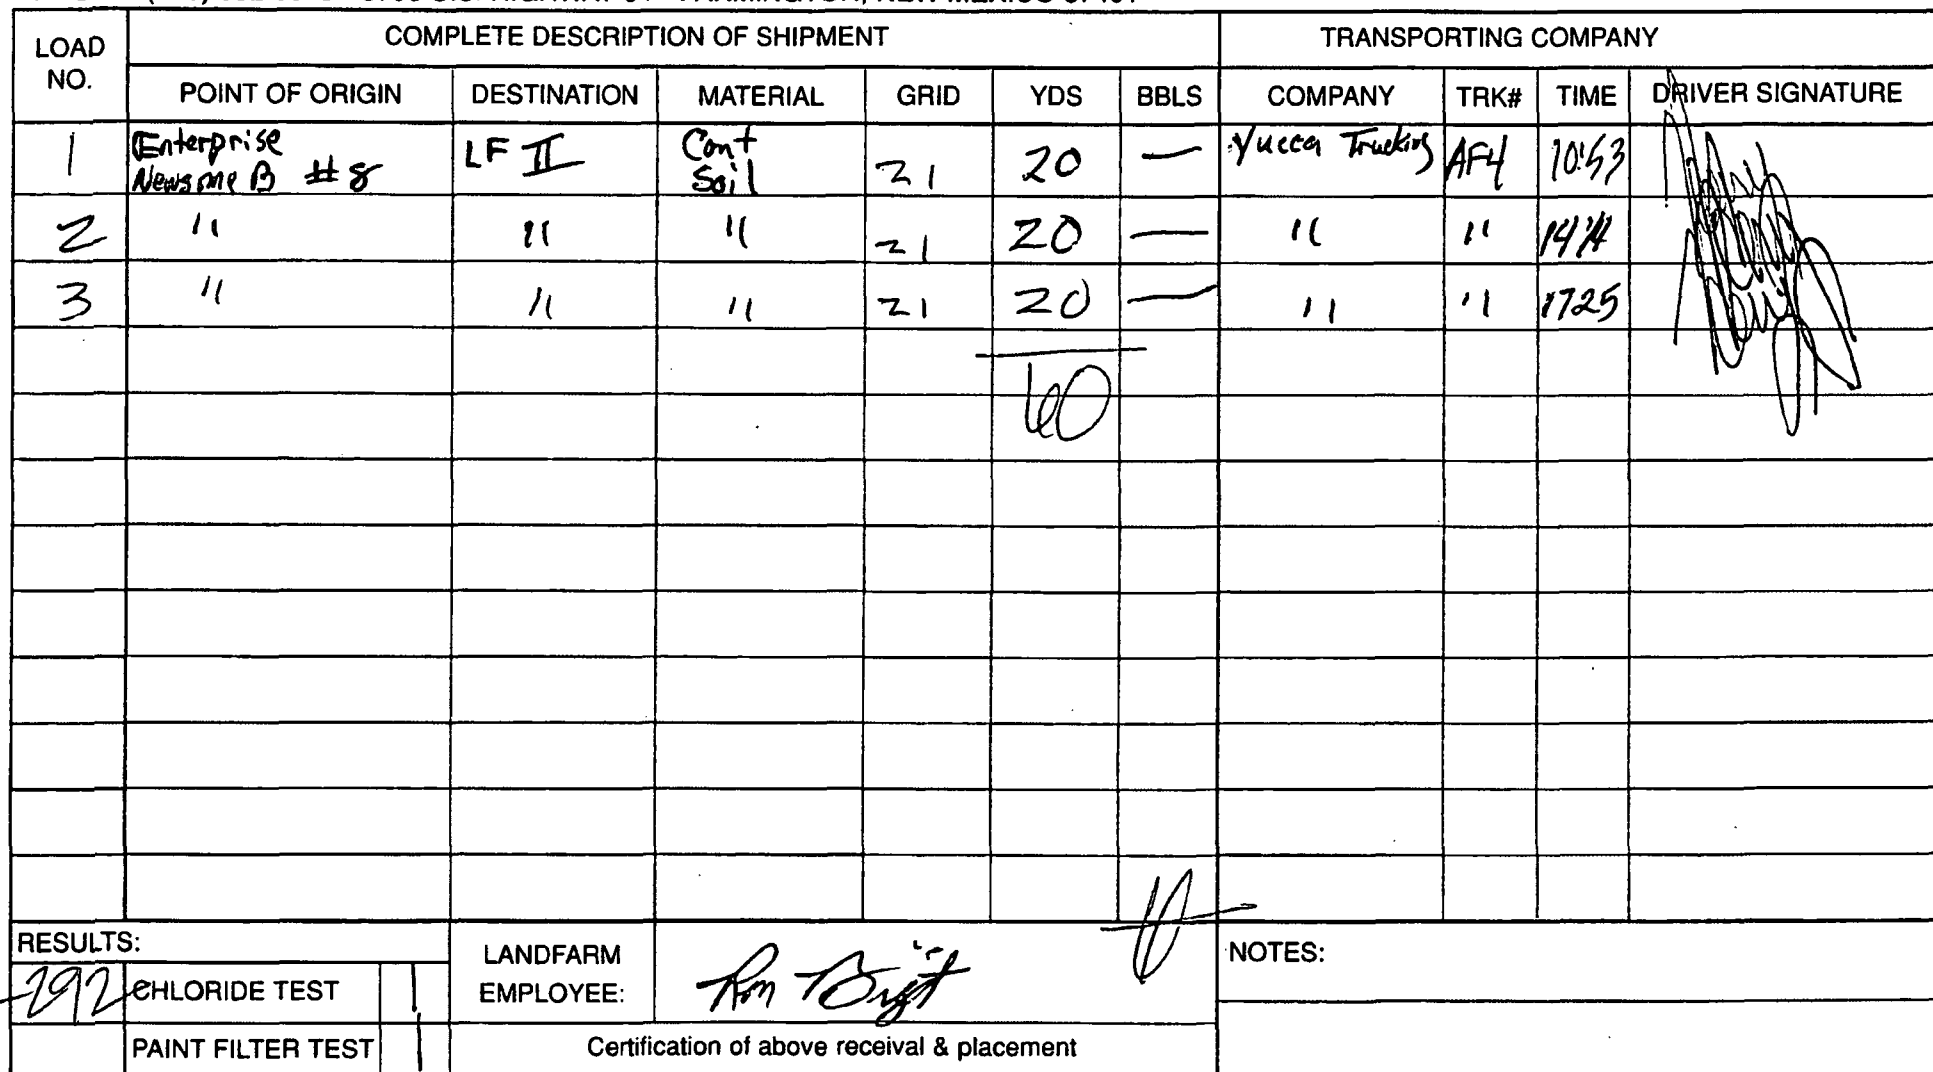 COMPLETE DESCRIPTION OF SHIPMENT TRANSPORTING COMPANY
LOAD NO. POINT OF ORIGIN DESTINATION MATERIAL GRID YDS BBLS COMPANY TRK# TIME DRIVER SIGNATURE
1 Enterprise Newsome B #8 LF II Cont Soil 21 20 — Yucca Trucking AF4 10:53
2 " " " 21 20 — " " 1414
3 " " " 21 20 — " " 1725
60
RESULTS:
-292 CHLORIDE TEST 1
PAINT FILTER TEST 1
LANDFARM
EMPLOYEE:
Certification of above receival & placement
NOTES: